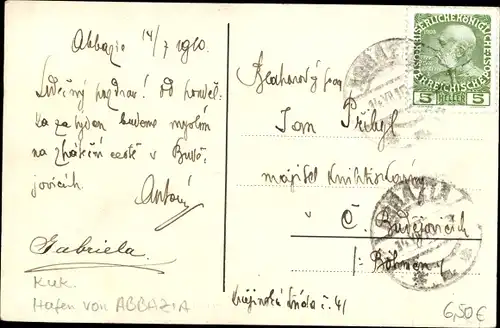 Abbazia 14/7 1910.
Srdečný pozdrav! Od ponděl-
ka za týden budeme myslím
na zpáteční cestě v Budě-
jovicích.
Antonín
Gabriela.
KuK.
Hafen von ABBAZIA
Blahorodý pan
Jan Přibyl
majitel knihtiskárny
v Č. Budějovicích
/: Böhmen
Krajinská třída č. 41
KAISERLICHE KÖNIGLICHE
ÖSTERREICHISCHE
5 HELLER 5
ABBAZIA
ABBAZIA
6,50€